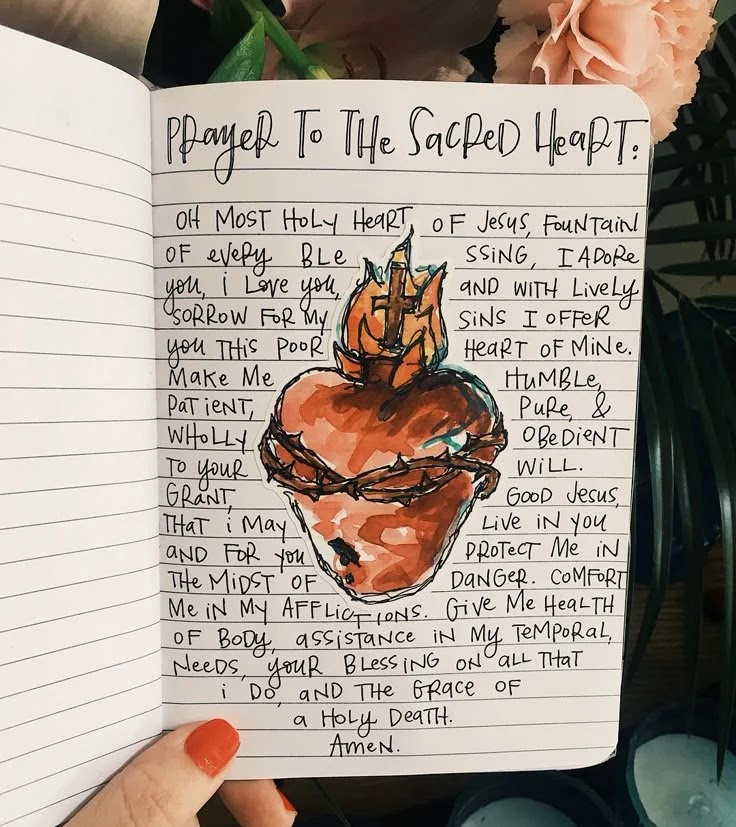 PRayeR To THe SacRed HeaRT:
OH MOST HOLY HEART OF Jesus, FOUNTAIN
OF eveRy BLessing, I ADORe
you, i Love you, AND WITH LiveLy
SORROW FOR My SiNS I OFFER
you THis POOR HEART OF MiNe.
Make Me HuMBLe,
PATieNT, PuRe, &
WHoLLy OBeDieNT
To youR WiLL.
GRANT, Good Jesus,
THAT i May Live iN you
AND FOR you PROTECT Me iN
THe MiDST OF DANGeR. COMFORT
Me iN My AFFLiCTIONS. Give Me HeALTH
OF BoDy, assistance iN My TeMPORAL,
Needs, youR BLessing ON aLL THAT
i Do, AND THe GRACe OF
a HoLy DeaTH.
AMeN.